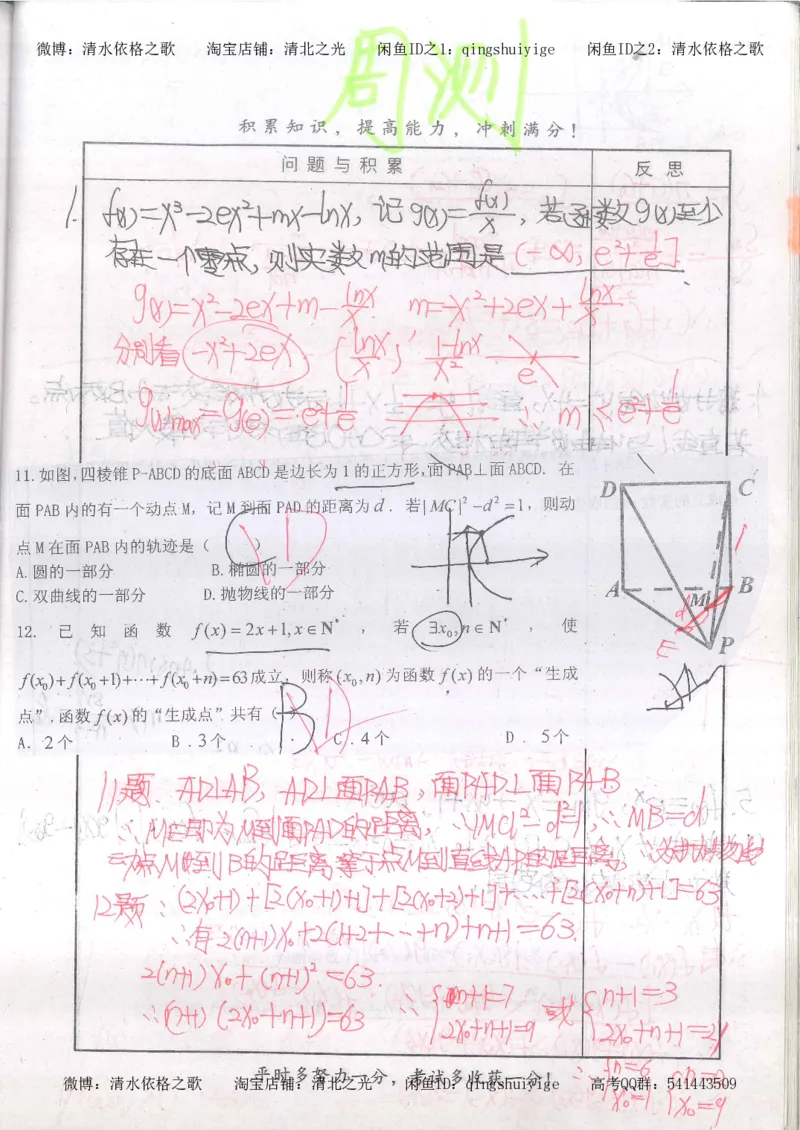 微博：清水依格之歌 淘宝店铺：清北之光 闲鱼ID之1：qingshuiyige 闲鱼ID之2：清水依格之歌
周测
积累知识，提高能力，冲刺满分！
问题与积累 反思
1. f(x)=x³-2ex²+mx-lnx，记g(x)=f(x)/x，若函数g(x)至少
存在一个零点，则实数m的范围是(-∞, e²+1/e]
g(x)=x²-2ex+m-lnx/x. m=-x²+2ex+lnx/x
分别看 -x²+2ex (lnx/x)' 1-lnx/x² e
g(x)max=g(e)=e²+1/e ∴m≤e²+1/e
11.如图,四棱锥P-ABCD的底面ABCD是边长为1的正方形,面PAB⊥面ABCD. 在
面PAB内的有一个动点M，记M到面PAD的距离为d．若|MC|²-d²=1，则动
点M在面PAB内的轨迹是（ D ）
A.圆的一部分 B.椭圆的一部分
C.双曲线的一部分 D.抛物线的一部分
D C A B M P d E 1
12. 已知函数 f(x)=2x+1,x∈N*，若∃x₀,n∈N*，使
f(x₀)+f(x₀+1)+⋯+f(x₀+n)=63成立，则称(x₀,n)为函数f(x)的一个“生成
点”.函数f(x)的“生成点”共有（ B ）
A．2个 B．3个 C．4个 D．5个
11题．AD⊥AB，AD⊥面PAB，面PAD⊥面PAB
∴ME即为M到面PAD的距离，∵|MC|²-d²=1，∴MB=d
动点M到B的距离等于点M到直线AP的距离，∴为抛物线
12题：(2x₀+1)+[2(x₀+1)+1]+[2(x₀+2)+1]+…+[2(x₀+n)+1]=63
∴有2(n+1)x₀+2(1+2+…+n)+n+1=63.
2(n+1)x₀+(n+1)²=63.
∴(n+1)(2x₀+n+1)=63 ∴{n+1=7 或 {n+1=3
2x₀+n+1=9 2x₀+n+1=21
∴{n=6 {n=2
x₀=1 x₀=9
平时多努力一分，考试多收获一分！
微博：清水依格之歌 淘宝店铺：清北之光 闲鱼ID：qingshuiyige 高考QQ群：541443509